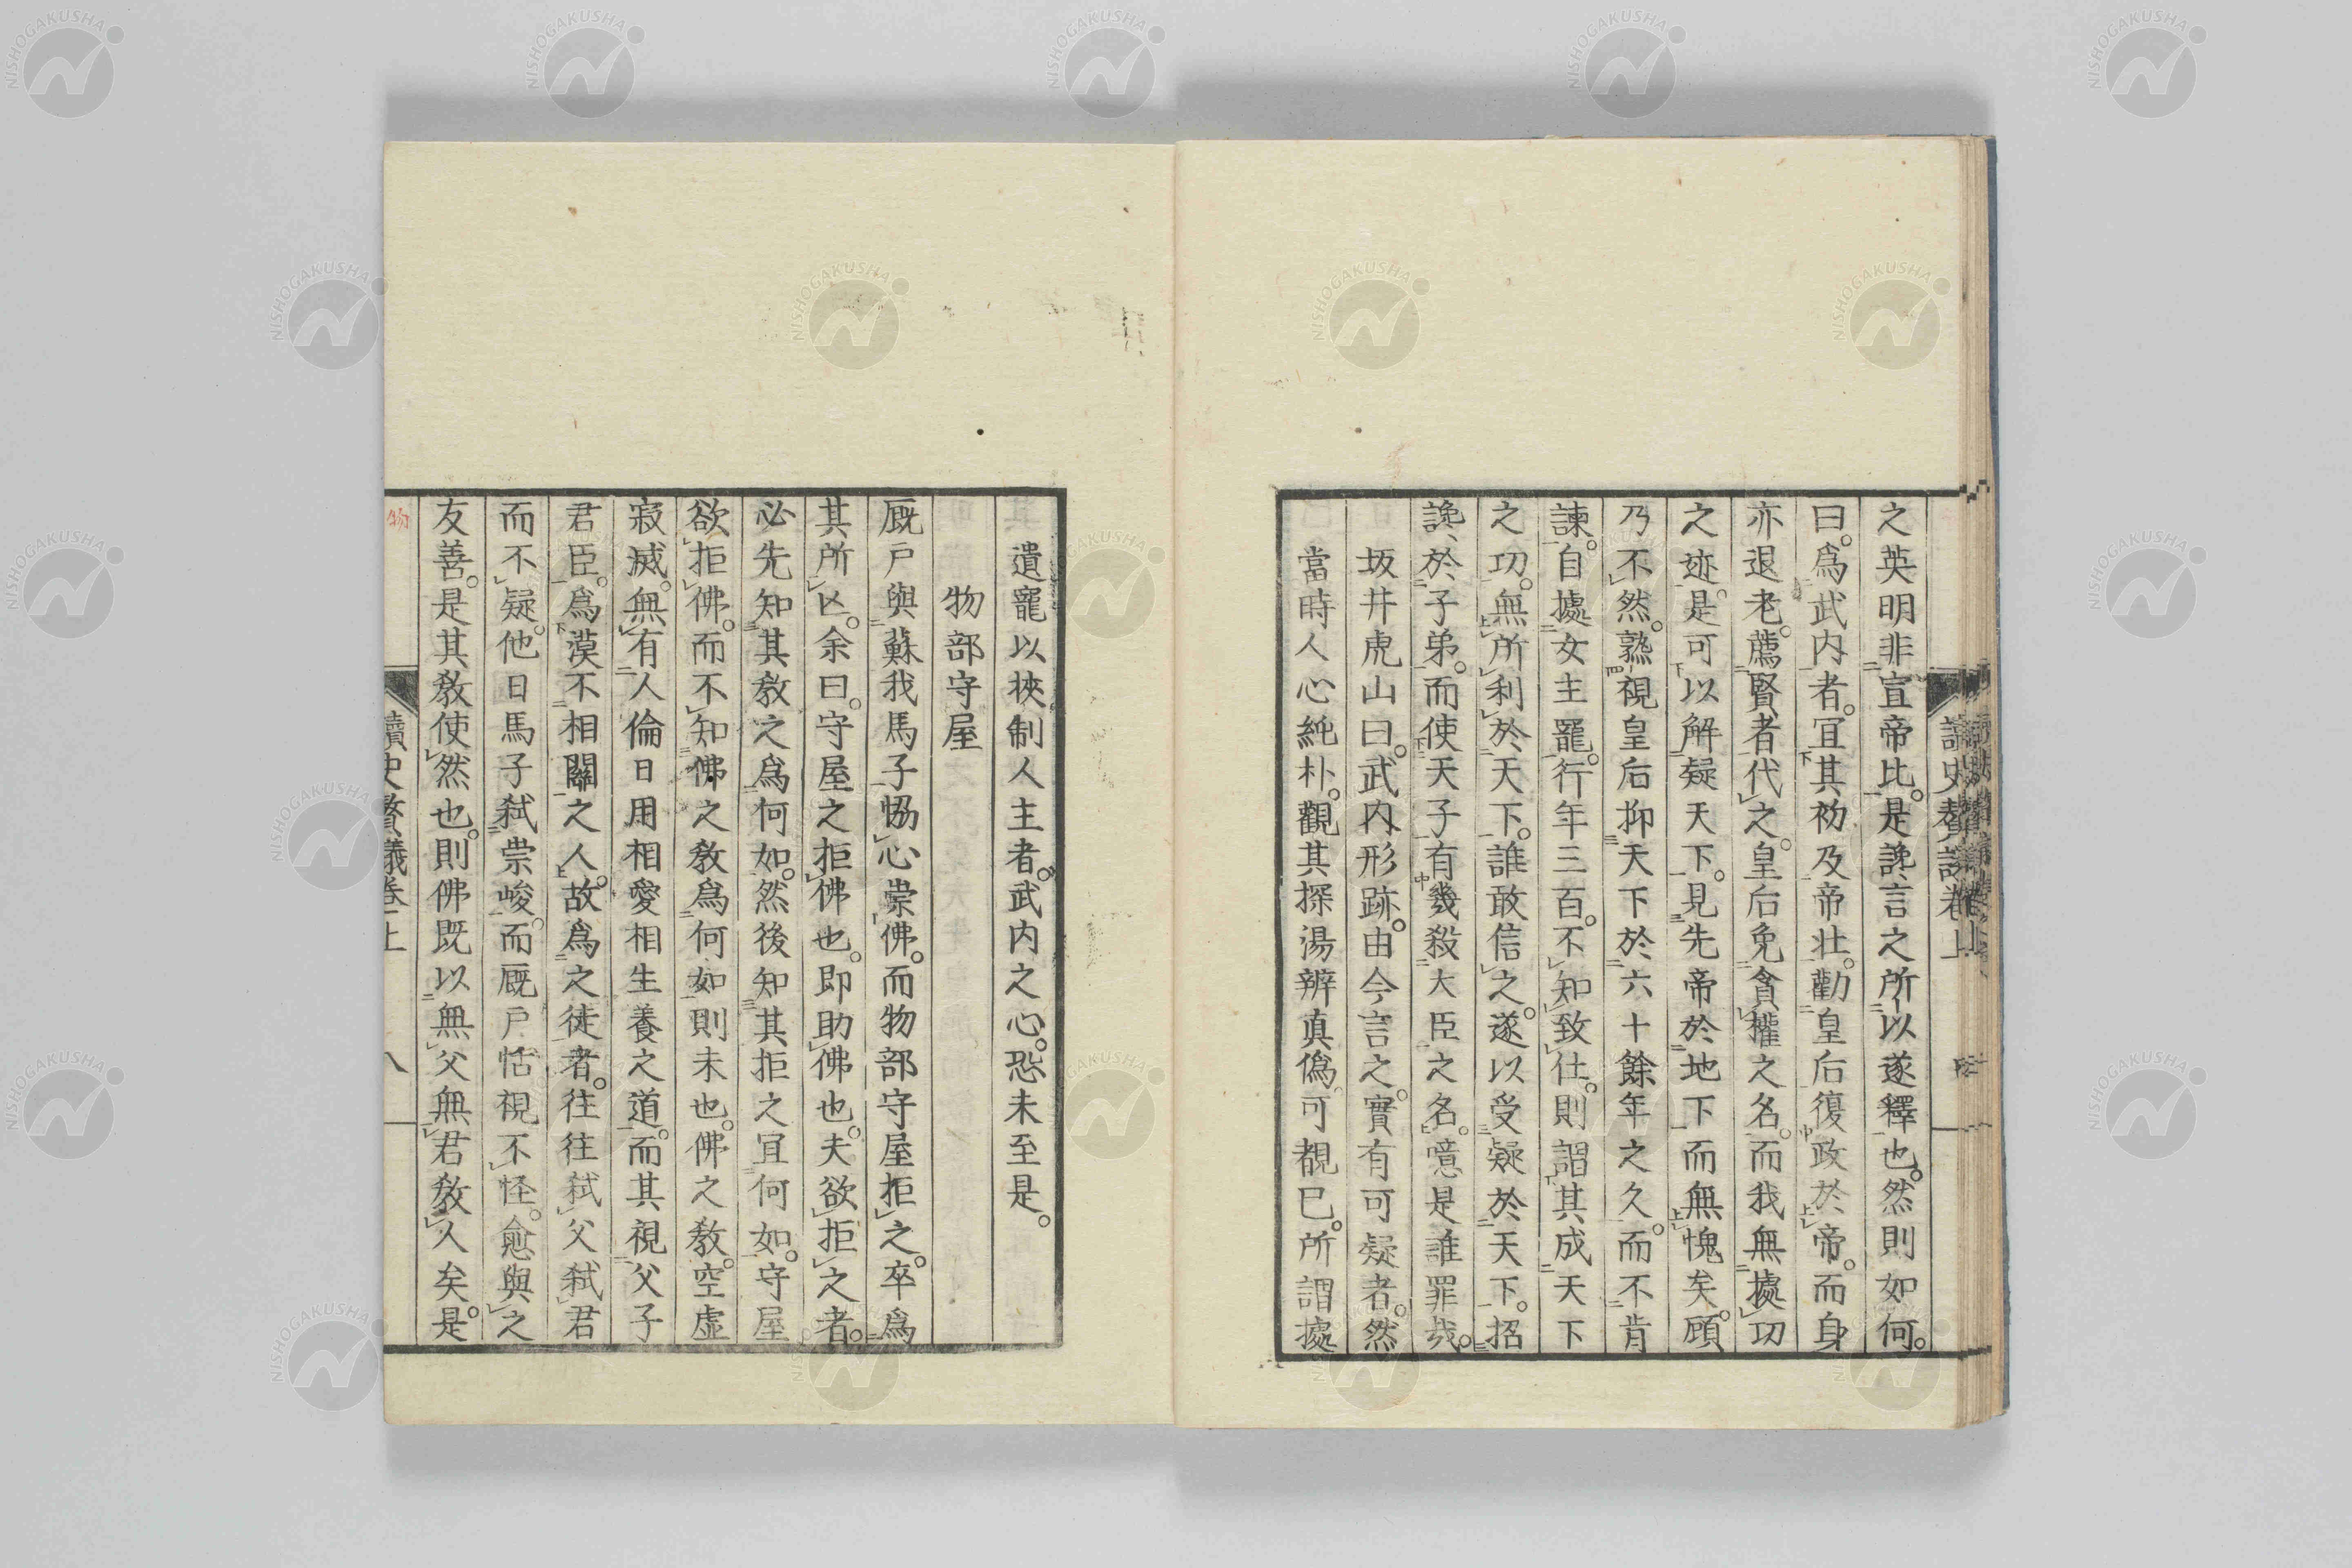 之英明非宣帝比。是讒言之所以遂釋也。然則如何。
曰。爲武内者。宜其初及帝壮。勸皇后復政於帝。而身
亦退老。薦賢者代之。皇后免貪權之名。而我無攘功
之迹。是可以解疑天下。見先帝於地下而無愧矣。顧
乃不然。熟視皇后抑天下於六十餘年之久。而不肯
諫。自攄女主寵。行年三百。不知致仕。則謂其成天下
之功。無所利於天下。誰敢信之。遂以受疑於天下。招
讒於子弟。而使天子有幾殺大臣之名。噫是誰罪哉。
坂井虎山曰。武内形跡。由今言之。實有可疑者。然
當時人心純朴。觀其探湯辨眞僞。可覩已。所謂據
遺寵以挾制人主者。武内之心。恐未至是。
物部守屋
厩戸與蘇我馬子協心崇佛。而物部守屋拒之。卒爲
其所亾。余曰。守屋之拒佛也。即助佛也。夫欲拒之者。
必先知其教之爲何如。然後知其拒之宜何如。守屋
欲拒佛。而不知佛之教爲何如則未也。佛之教。空虛
寂滅。無有人倫日用相愛相生養之道。而其視父子
君臣。爲漠不相關之人。故爲之徒者。往往弑父弑君
而不疑。他日馬子弑崇峻。而厩戸恬視不怪。愈與之
友善。是其教使然也。則佛既以無父無君教人矣。是
讀史贅議卷上
八
物
讀史贅議卷上
NISHOGAKUSHA